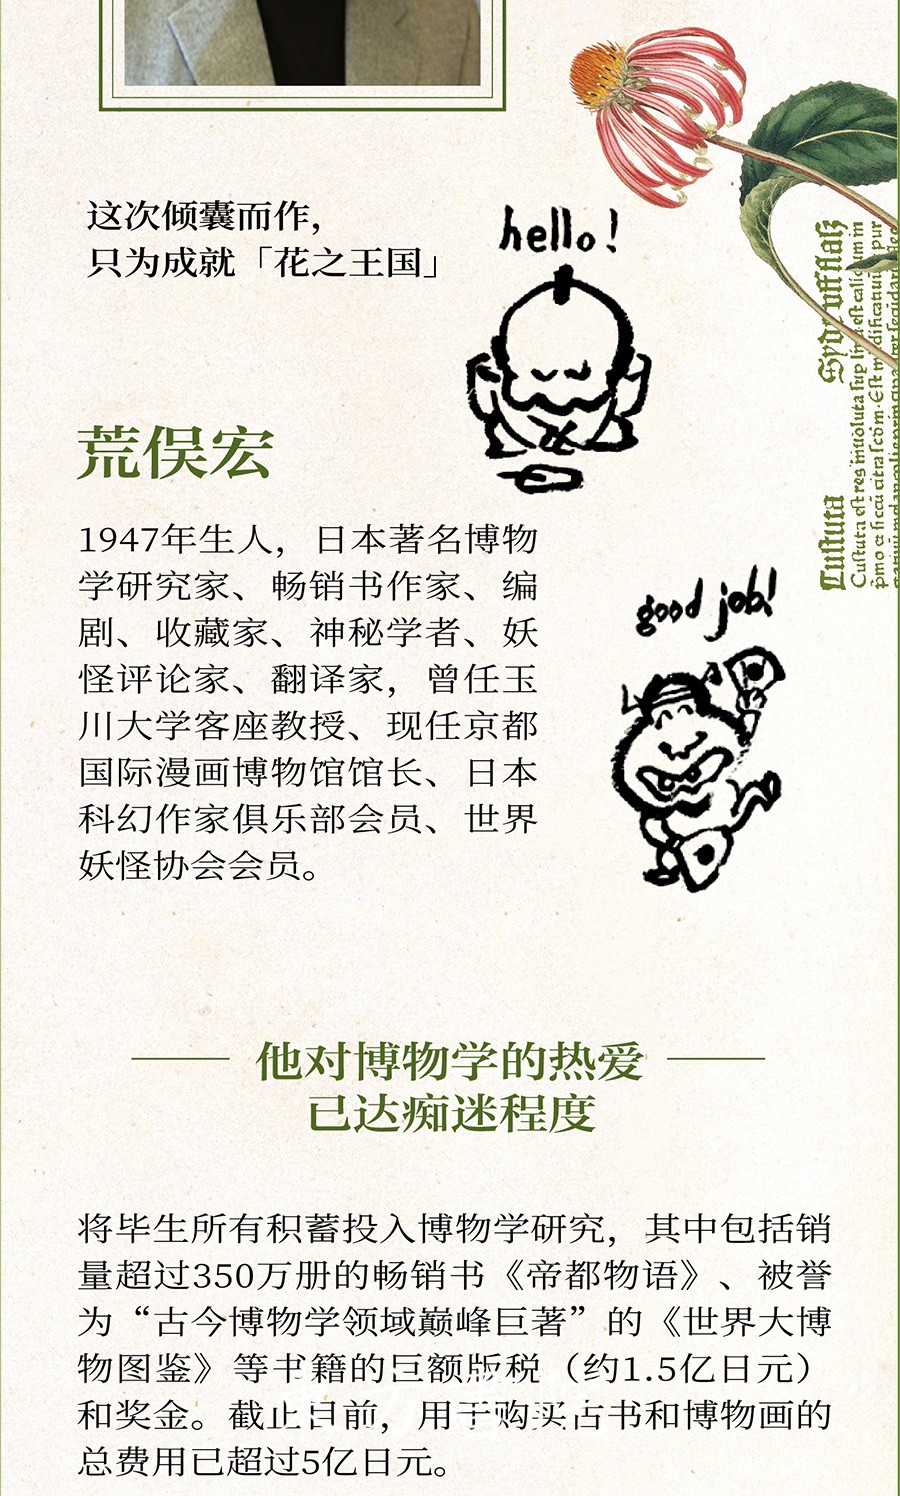 这次倾囊而作，
只为成就「花之王国」
hello!
荒俣宏
1947年生人，日本著名博物
学研究家、畅销书作家、编
剧、收藏家、神秘学者、妖
怪评论家、翻译家，曾任玉
川大学客座教授、现任京都
国际漫画博物馆馆长、日本
科幻作家俱乐部会员、世界
妖怪协会会员。
good job!
他对博物学的热爱
已达痴迷程度
将毕生所有积蓄投入博物学研究，其中包括销
量超过350万册的畅销书《帝都物语》、被誉
为“古今博物学领域巅峰巨著”的《世界大博
物图鉴》等书籍的巨额版税（约1.5亿日元）
和奖金。截止目前，用于购买古书和博物画的
总费用已超过5亿日元。